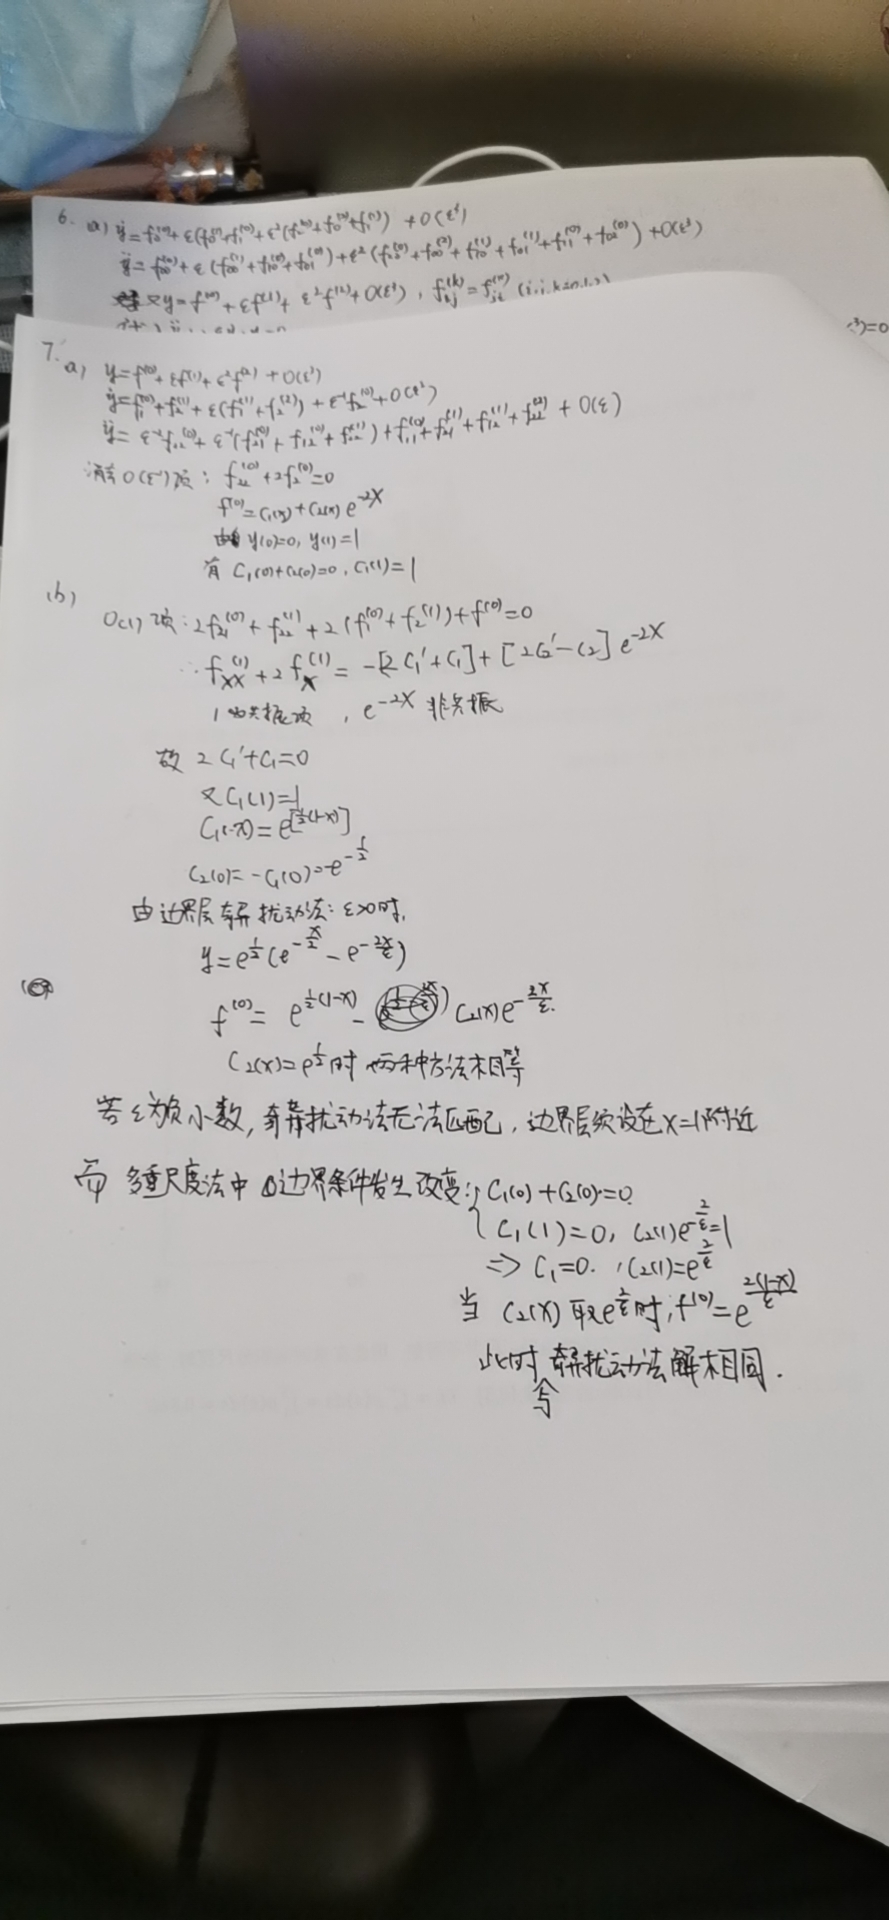 6. a) ẏ=f₀⁽⁰⁾+ε(f₀⁽¹⁾+f₁⁽⁰⁾)+ε²(f₀⁽²⁾+f₁⁽¹⁾) +O(ε³)
ÿ=f₀₀⁽⁰⁾+ε(f₀₀⁽¹⁾+f₁₀⁽⁰⁾+f₀₁⁽⁰⁾)+ε²(f₀₀⁽²⁾+f₁₀⁽¹⁾+f₀₁⁽¹⁾+f₁₁⁽⁰⁾+f₀₂⁽⁰⁾)+O(ε³)
又y=f⁽⁰⁾+εf⁽¹⁾+ε²f⁽²⁾+O(ε³),
³)=0
7. a) y=f⁽⁰⁾+εf⁽¹⁾+ε²f⁽²⁾+O(ε³)
ẏ=f₁⁽⁰⁾+f₂⁽¹⁾+ε(f₁⁽¹⁾+f₂⁽²⁾)+ε⁻¹f₂⁽⁰⁾+O(ε²)
ÿ=ε⁻²f₂₂⁽⁰⁾+ε⁻¹(f₂₁⁽⁰⁾+f₁₂⁽⁰⁾+f₂₂⁽¹⁾)+f₁₁⁽⁰⁾+f₂₁⁽¹⁾+f₁₂⁽¹⁾+f₂₂⁽²⁾+O(ε)
O(ε⁻¹)项: f₂₂⁽⁰⁾+2f₂⁽⁰⁾=0
f⁽⁰⁾=C₁(x)+C₂(x)e^{-2X}
由 y(0)=0, y(1)=1
有 C₁(0)+C₂(0)=0, C₁(1)=1
(b) O(1)项: 2f₂₁⁽⁰⁾+f₂₂⁽¹⁾+2(f₁⁽⁰⁾+f₂⁽¹⁾)+f⁽⁰⁾=0
∴ f_{XX}⁽¹⁾+2f_X⁽¹⁾=-[2C₁'+C₁]+[2C₂'-C₂]e^{-2X}
1为共振项, e^{-2X}非共振
故 2C₁'+C₁=0
又C₁(1)=1
C₁(x)=e^{[½(1-x)]}
C₂(0)=-C₁(0)=-e^{-½}
由边界层奇异扰动法: ε>0时,
y=e^{½}(e^{-x/2}-e^{-2x/ε})
f⁽⁰⁾=e^{½(1-x)}-C₂(x)e^{-2x/ε}.
C₂(x)=e^{½}时 两种方法相等
若ε为负小数, 奇异扰动法无法匹配, 边界层须设在x=1附近
而 多重尺度法中 边界条件发生改变: { C₁(0)+C₂(0)=0.
C₁(1)=0, C₂(1)e^{-2/ε}=1
⇒ C₁=0. , C₂(1)=e^{2/ε}
当 C₂(x)取e^{2/ε}时, f⁽⁰⁾=e^{2(1-x)/ε}
此时与奇异扰动法解相同.